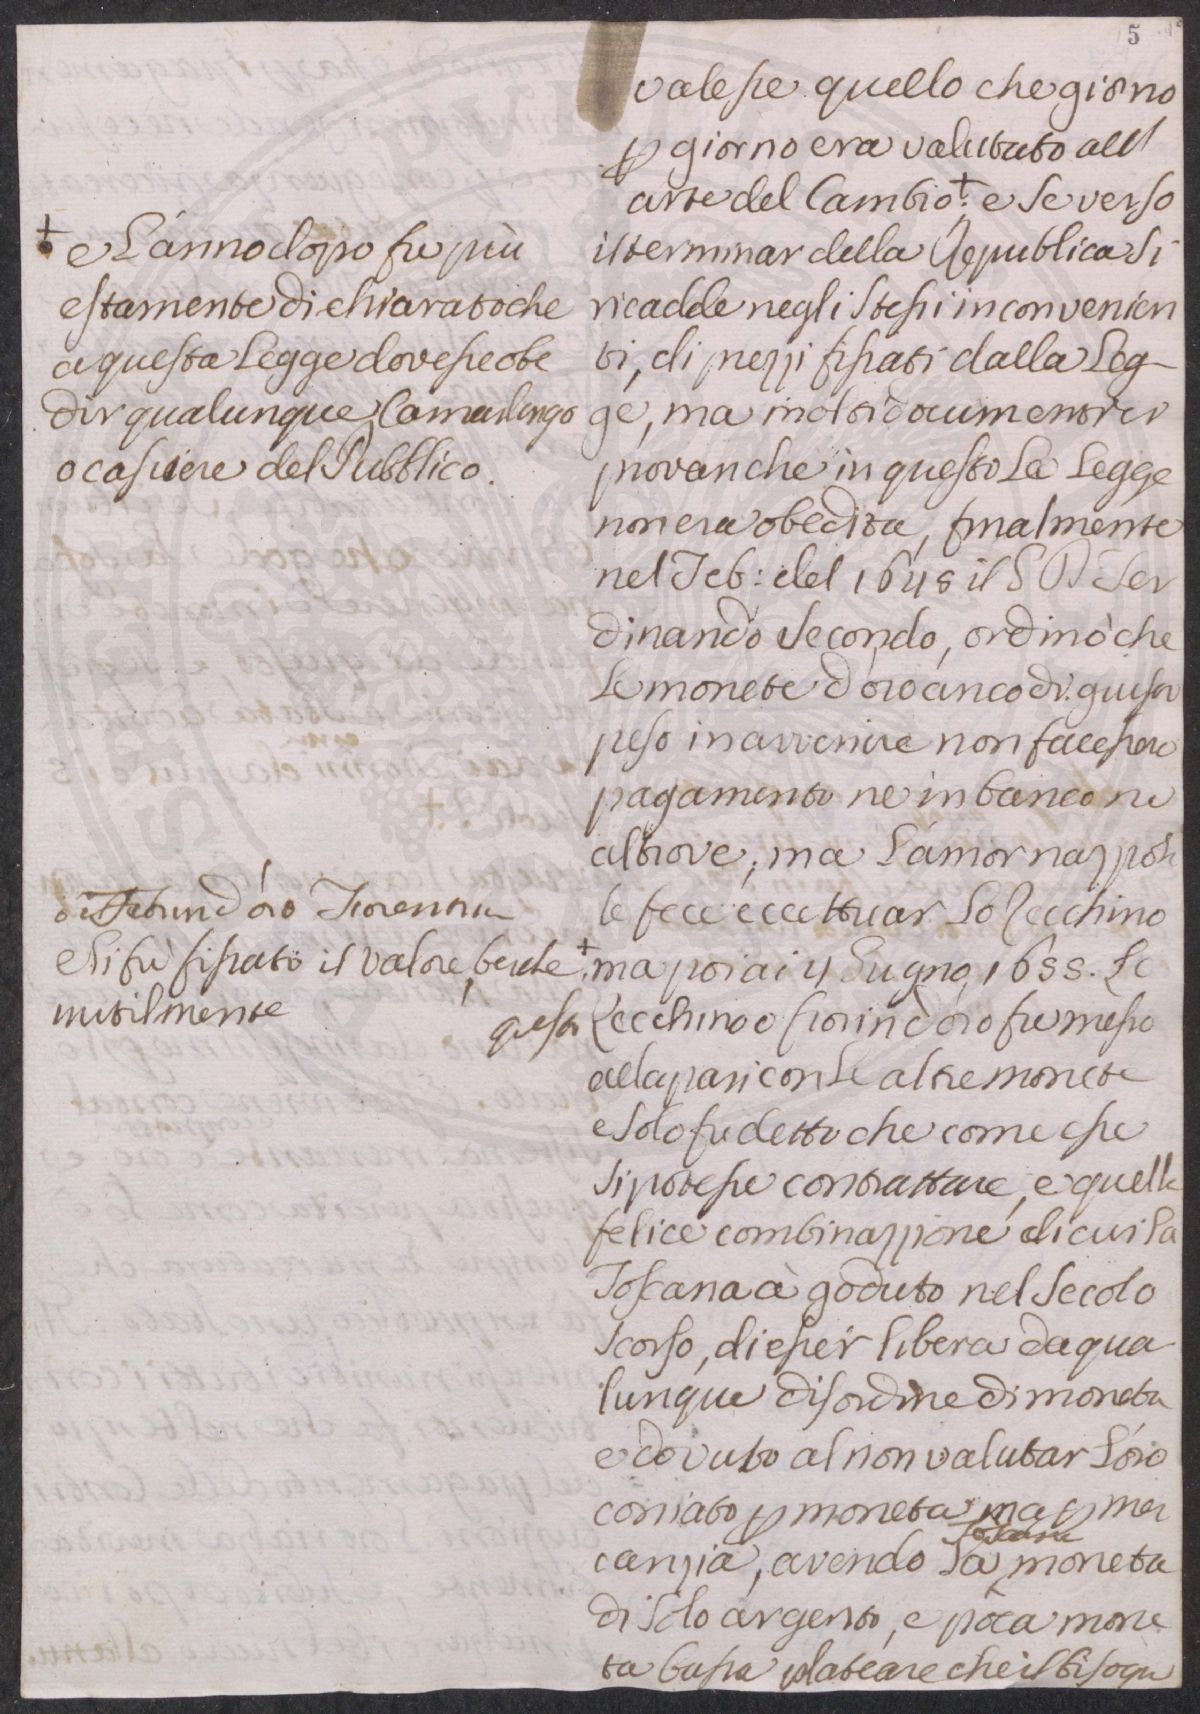 5
valesse quello che giorno
p giorno era valutato all'
arte del Cambio † e se verso
il terminar della Republica si
ricadde negli stessi inconvenien
ti, di prezzi fissati dalla Leg-
ge, ma molti documenti ci
provan che in questo La Legge
non era obedita, finalmente
nel Feb: del 1648 il Fer
dinando secondo, ordinò che
Le monete d'oro anco di giusto
peso in avvenire non facessero
pagamento ne in banco ne
altrove, ma L'amor nazzion
le fece eccettuar Lo Zecchino
† ma poi ai 4 Giugno 1655. Lo
Zecchino o fiorin d'oro fu messo
alla pari con Le altre monete
e solo fu detto che come esse
si potesse contrattare, e quella
felice combinazzione di cui La
Toscana à goduto nel secolo
scorso, di esser libera da qua
lunque disordine di moneta
e dovuto al non valutar L'oro
coniato p moneta ma p mer
canzia, avendo La Toscana moneta
di solo argento, e poca mone
ta bassa plateare che il bisogn
† e L'anno dopo fu più
estamente dichiarato che
a questa Legge dovesse obe
dir qualunque Camarlingo
o cassiere del Pubblico.
d'oro Fiorentin
e li fu fissato il valore, benche
inutilmente
questo